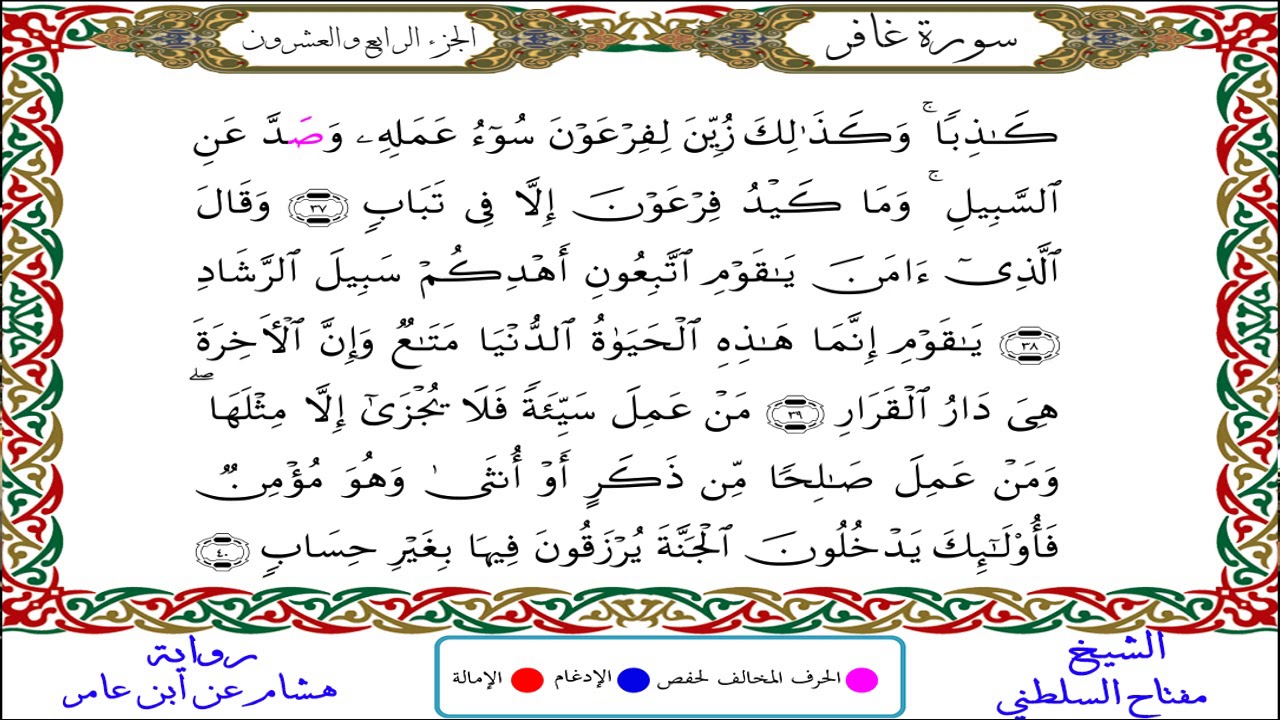 سورة غافر
الجزء الرابع والعشرون
كَـٰذِبًا ۚ وَكَذَٰلِكَ زُيِّنَ لِفِرْعَوْنَ سُوٓءُ عَمَلِهِۦ وَصَدَّ عَنِ
ٱلسَّبِيلِ ۚ وَمَا كَيْدُ فِرْعَوْنَ إِلَّا فِى تَبَابٍ ٣٧ وَقَالَ
ٱلَّذِىٓ ءَامَنَ يَـٰقَوْمِ ٱتَّبِعُونِ أَهْدِكُمْ سَبِيلَ ٱلرَّشَادِ
٣٨ يَـٰقَوْمِ إِنَّمَا هَـٰذِهِ ٱلْحَيَوٰةُ ٱلدُّنْيَا مَتَـٰعٌ وَإِنَّ ٱلْأَخِرَةَ
هِىَ دَارُ ٱلْقَرَارِ ٣٩ مَنْ عَمِلَ سَيِّئَةً فَلَا يُجْزَىٰٓ إِلَّا مِثْلَهَا ۖ
وَمَنْ عَمِلَ صَـٰلِحًا مِّن ذَكَرٍ أَوْ أُنثَىٰ وَهُوَ مُؤْمِنٌ
فَأُو۟لَـٰٓئِكَ يَدْخُلُونَ ٱلْجَنَّةَ يُرْزَقُونَ فِيهَا بِغَيْرِ حِسَابٍ ٤٠
الشيخ
مفتاح السلطني
الحرف المخالف لحفص
الإدغام
الإمالة
رواية
هشام عن ابن عامر